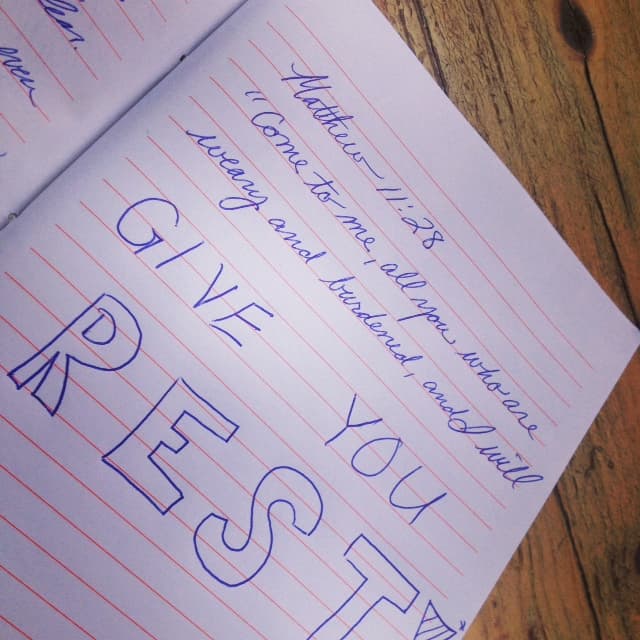 Matthew 11:28
"Come to me, all you who are
weary and burdened, and I will
GIVE YOU
REST